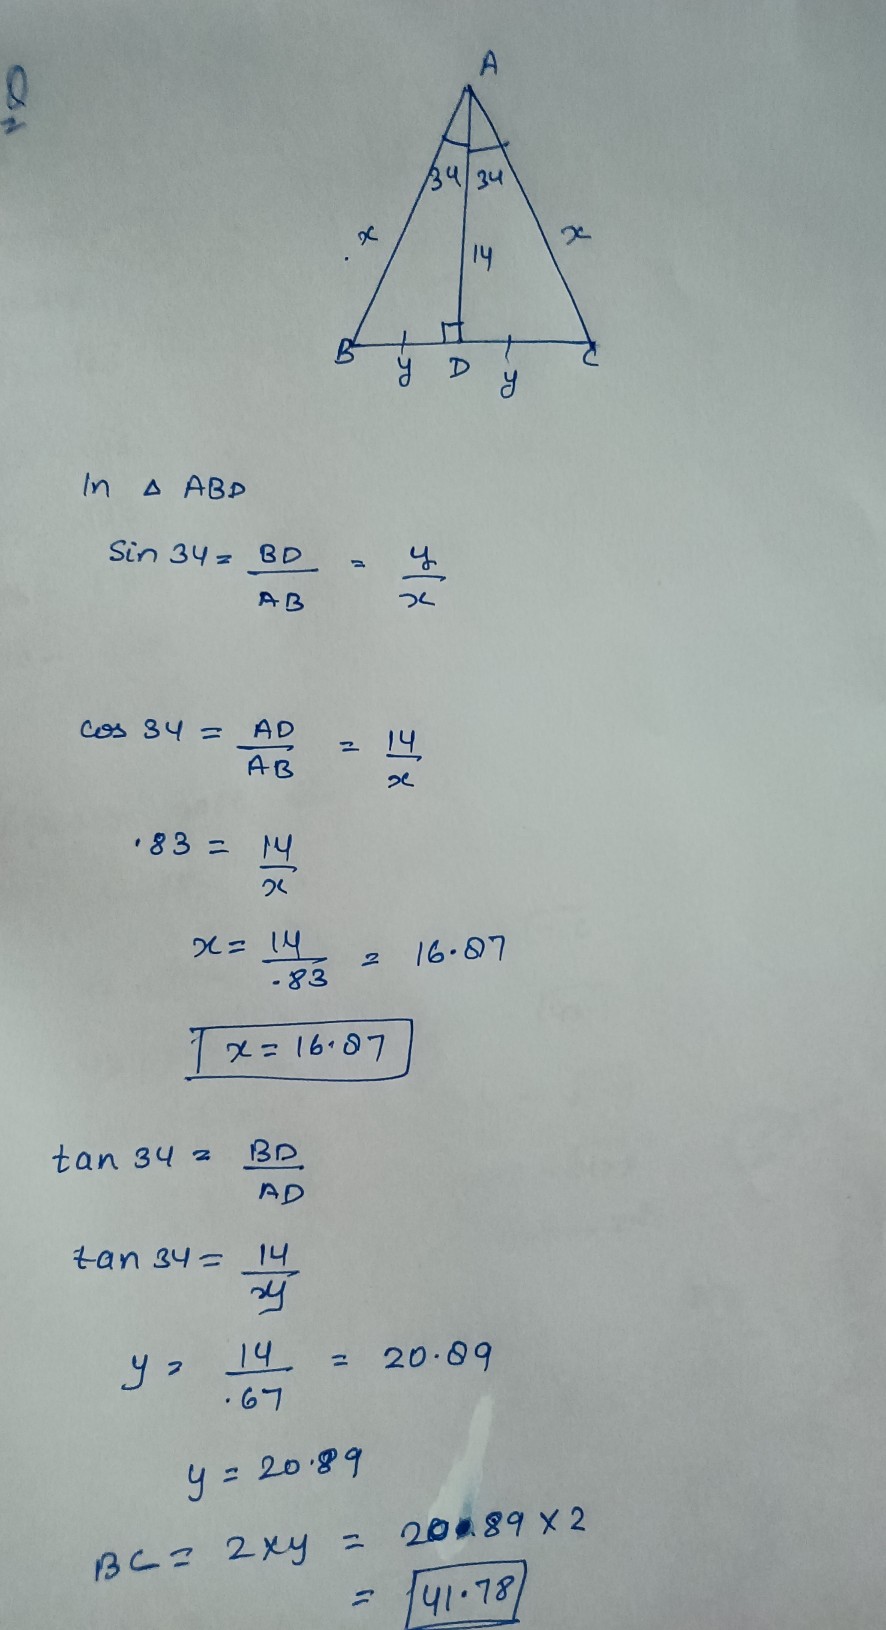 Q
A
34 34
x x
14
B y D y C
In Δ ABD
Sin 34 = BD/AB = y/x
cos 34 = AD/AB = 14/x
.83 = 14/x
x = 14/.83 = 16.87
x = 16.87
tan 34 = BD/AD
tan 34 = 14/y
y = 14/.67 = 20.89
y = 20.89
BC = 2xy = 20.89 x 2
= 41.78